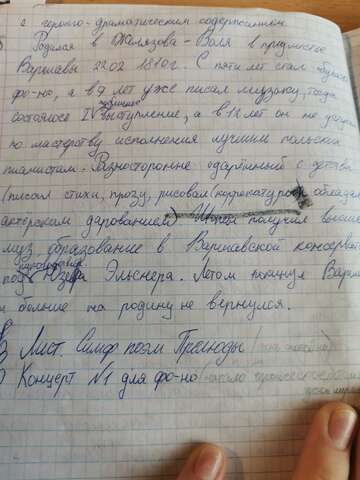 с героико-драматическим содержанием.
Родился в Желязова-Воля в предместье
Варшавы 22.02 1810г. С пяти лет стал
фо-но, а в 7 лет уже писал музыку, тогда
состоялось I выступление, а в 12 лет он не
по мастерству исполнения лучшим польским
пианистам. Разносторонне одарённый с детства
(писал стихи, прозу, рисовал обладал
актёрским дарованием) получил
муз. образование в Варшавской консерват
под Юзефа Эльснера. Летом покинул Варш
и больше на родину не вернулся.
Лист. Симф поэм Прелюды
Концерт №1 для фо-но (около